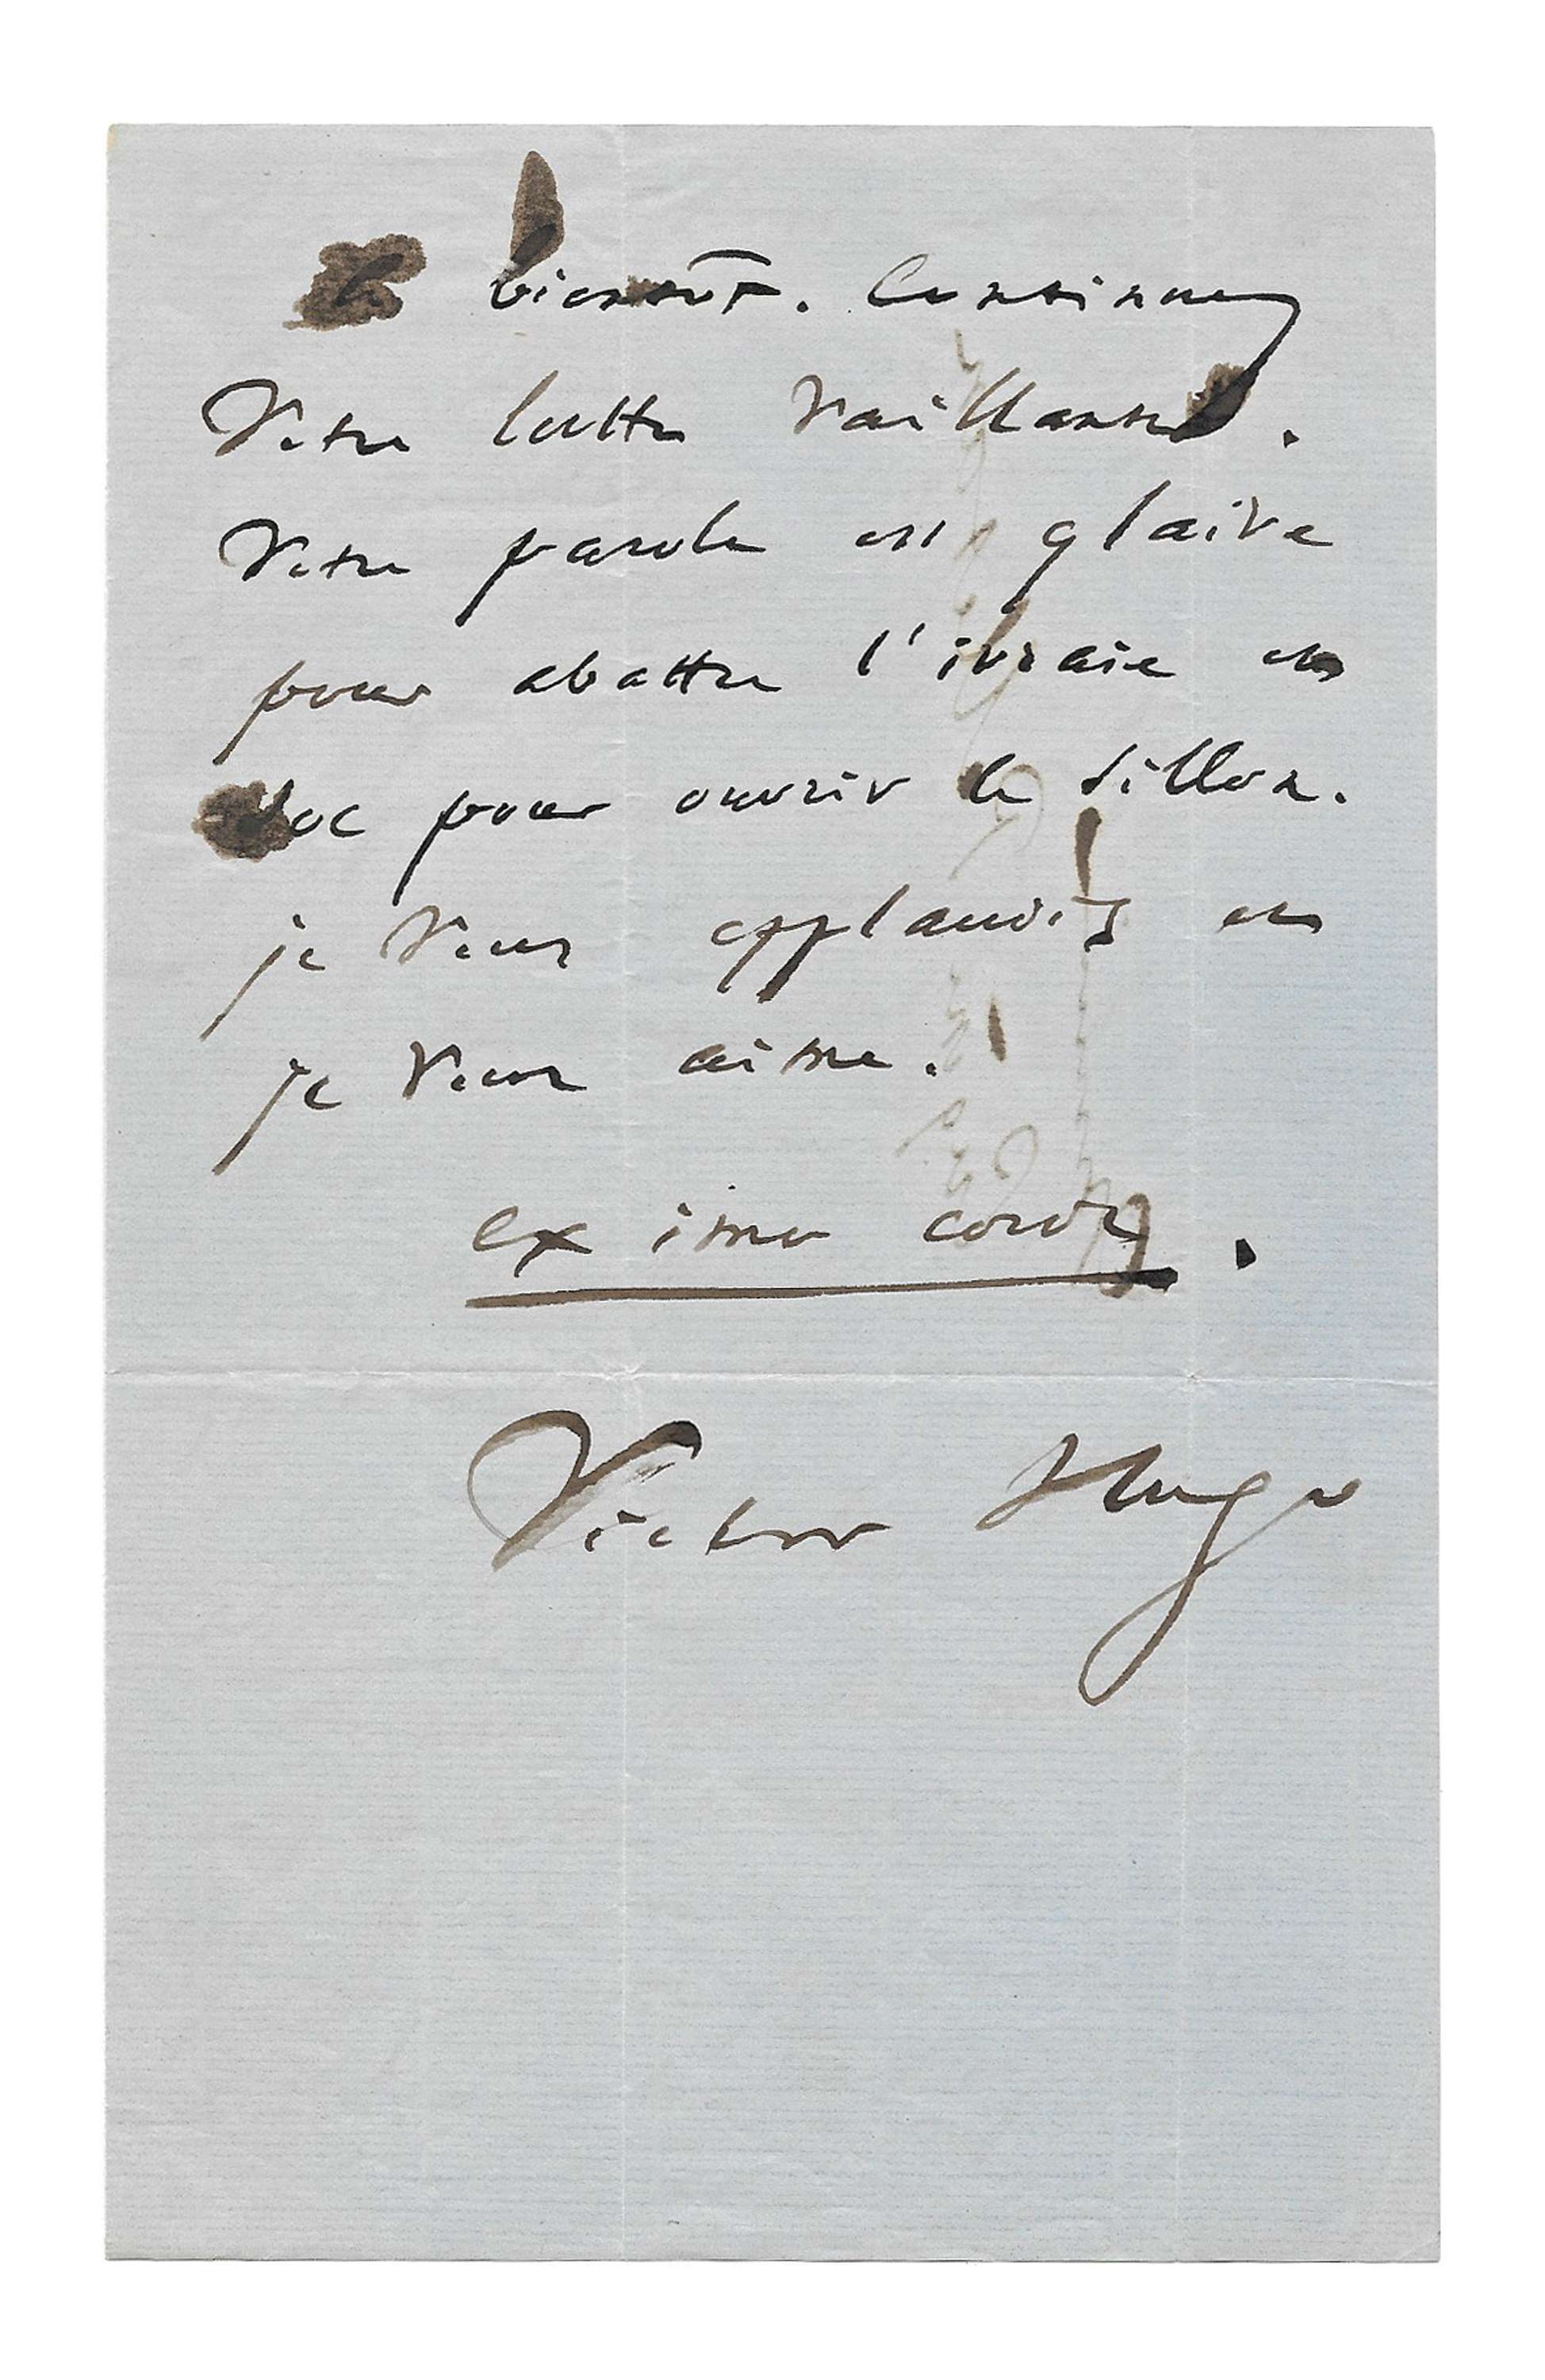 à bientôt. Continuez
Votre lutte vaillante.
Votre parole est glaive
pour abattre l'ivraie et
soc pour ouvrir le sillon.
je vous applaudis et
je vous aime.
ex imo corde.
Victor Hugo